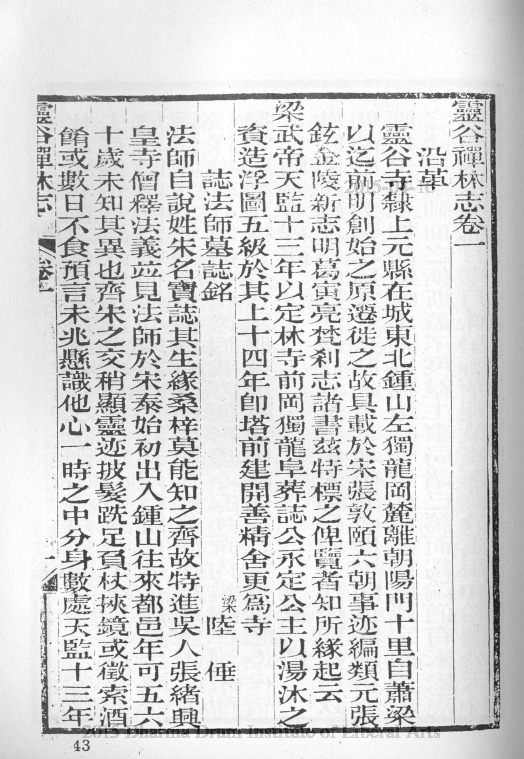 靈谷禪林志卷一
沿革
靈谷寺隸上元縣在城東北鍾山左獨龍岡麓離朝陽門十里自蕭梁
以迄前明創始之原遷徙之故具載於宋張敦頤六朝事迹編類元張
鉉金陵新志明葛寅亮梵剎志諸書茲特標之俾覽者知所緣起云
梁武帝天監十三年以定林寺前岡獨龍阜葬誌公永定公主以湯沐之
資造浮圖五級於其上十四年卽塔前建開善精舍更爲寺
誌法師墓誌銘
梁陸倕
法師自說姓朱名寶誌其生緣桑梓莫能知之齊故特進吳人張緒興
皇寺僧釋法義竝見法師於宋泰始初出入鍾山往來都邑年可五六
十歲未知其異也齊宋之交稍顯靈迹披髮跣足負杖挾鏡或徵索酒
餚或數日不食預言未兆懸識他心一時之中分身數處天監十三年
靈谷禪林志
卷一
一
43
2015 Dharma Drum Institute of Liberal Arts